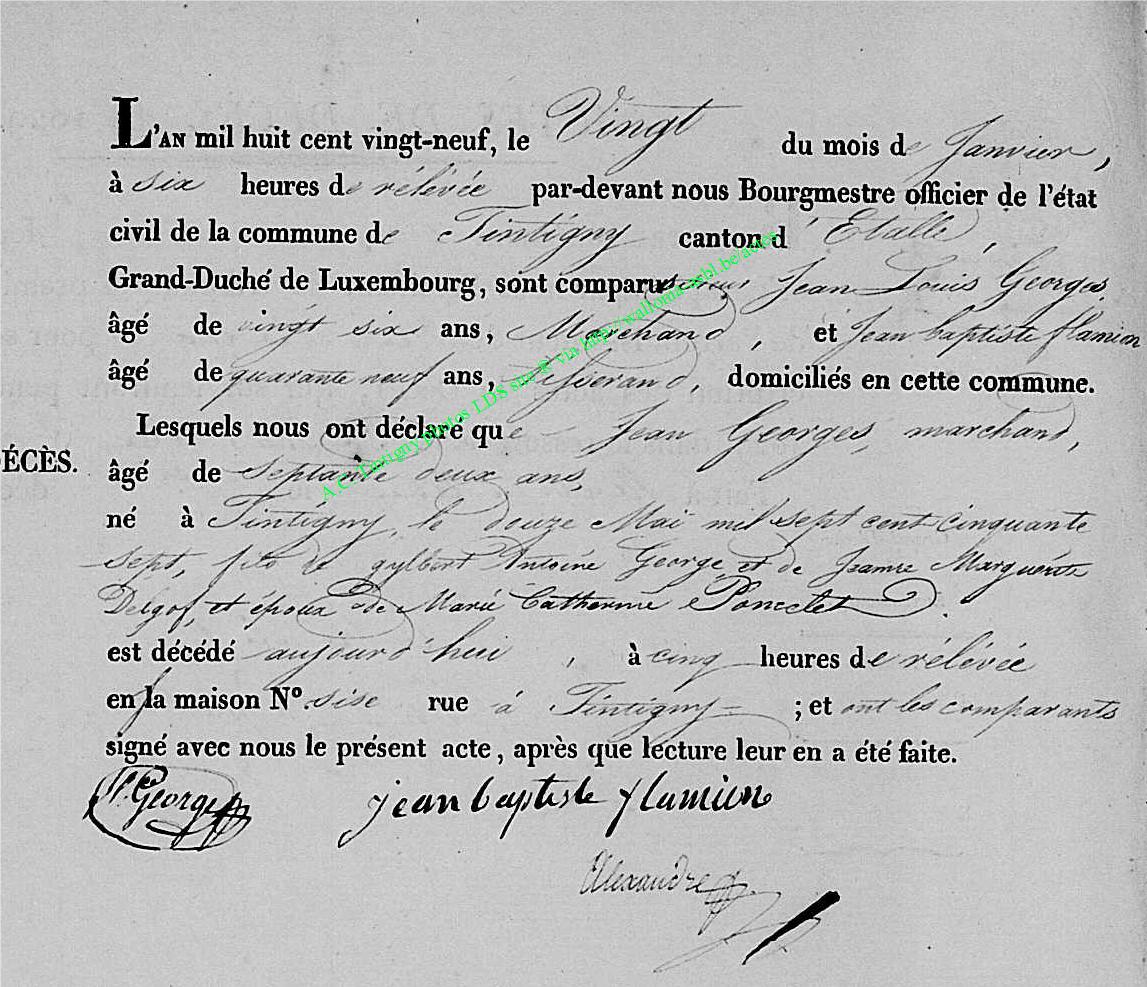 L'AN mil huit cent vingt-neuf, le Vingt du mois de Janvier,
à six heures de rélévée par-devant nous Bourgmestre officier de l'état
civil de la commune de Tintigny canton d'Etalle,
Grand-Duché de Luxembourg, sont comparus Jean Louis Georges,
âgé de vingt six ans, Marchand, et Jean baptiste flamion
âgé de quarante neuf ans, tisserand, domiciliés en cette commune.
Lesquels nous ont déclaré que Jean Georges, marchand,
ÉCÈS.
âgé de septante deux ans,
né à Tintigny, le douze Mai mil sept cent cinquante
sept, fils de gylbert Antoine George, et de Jeanne Marguérite
Delgof, et époux de Marie Catherine Poncelet
est décédé aujourd'hui, à cinq heures de rélévée
en la maison N°. sise rue à Tintigny ; et ont les comparants
signé avec nous le présent acte, après que lecture leur en a été faite.
Georges jean baptiste flamion
Alexandre
A.C. Tintigny photos LDS site ® via http://wallonia.asbl.be/actes